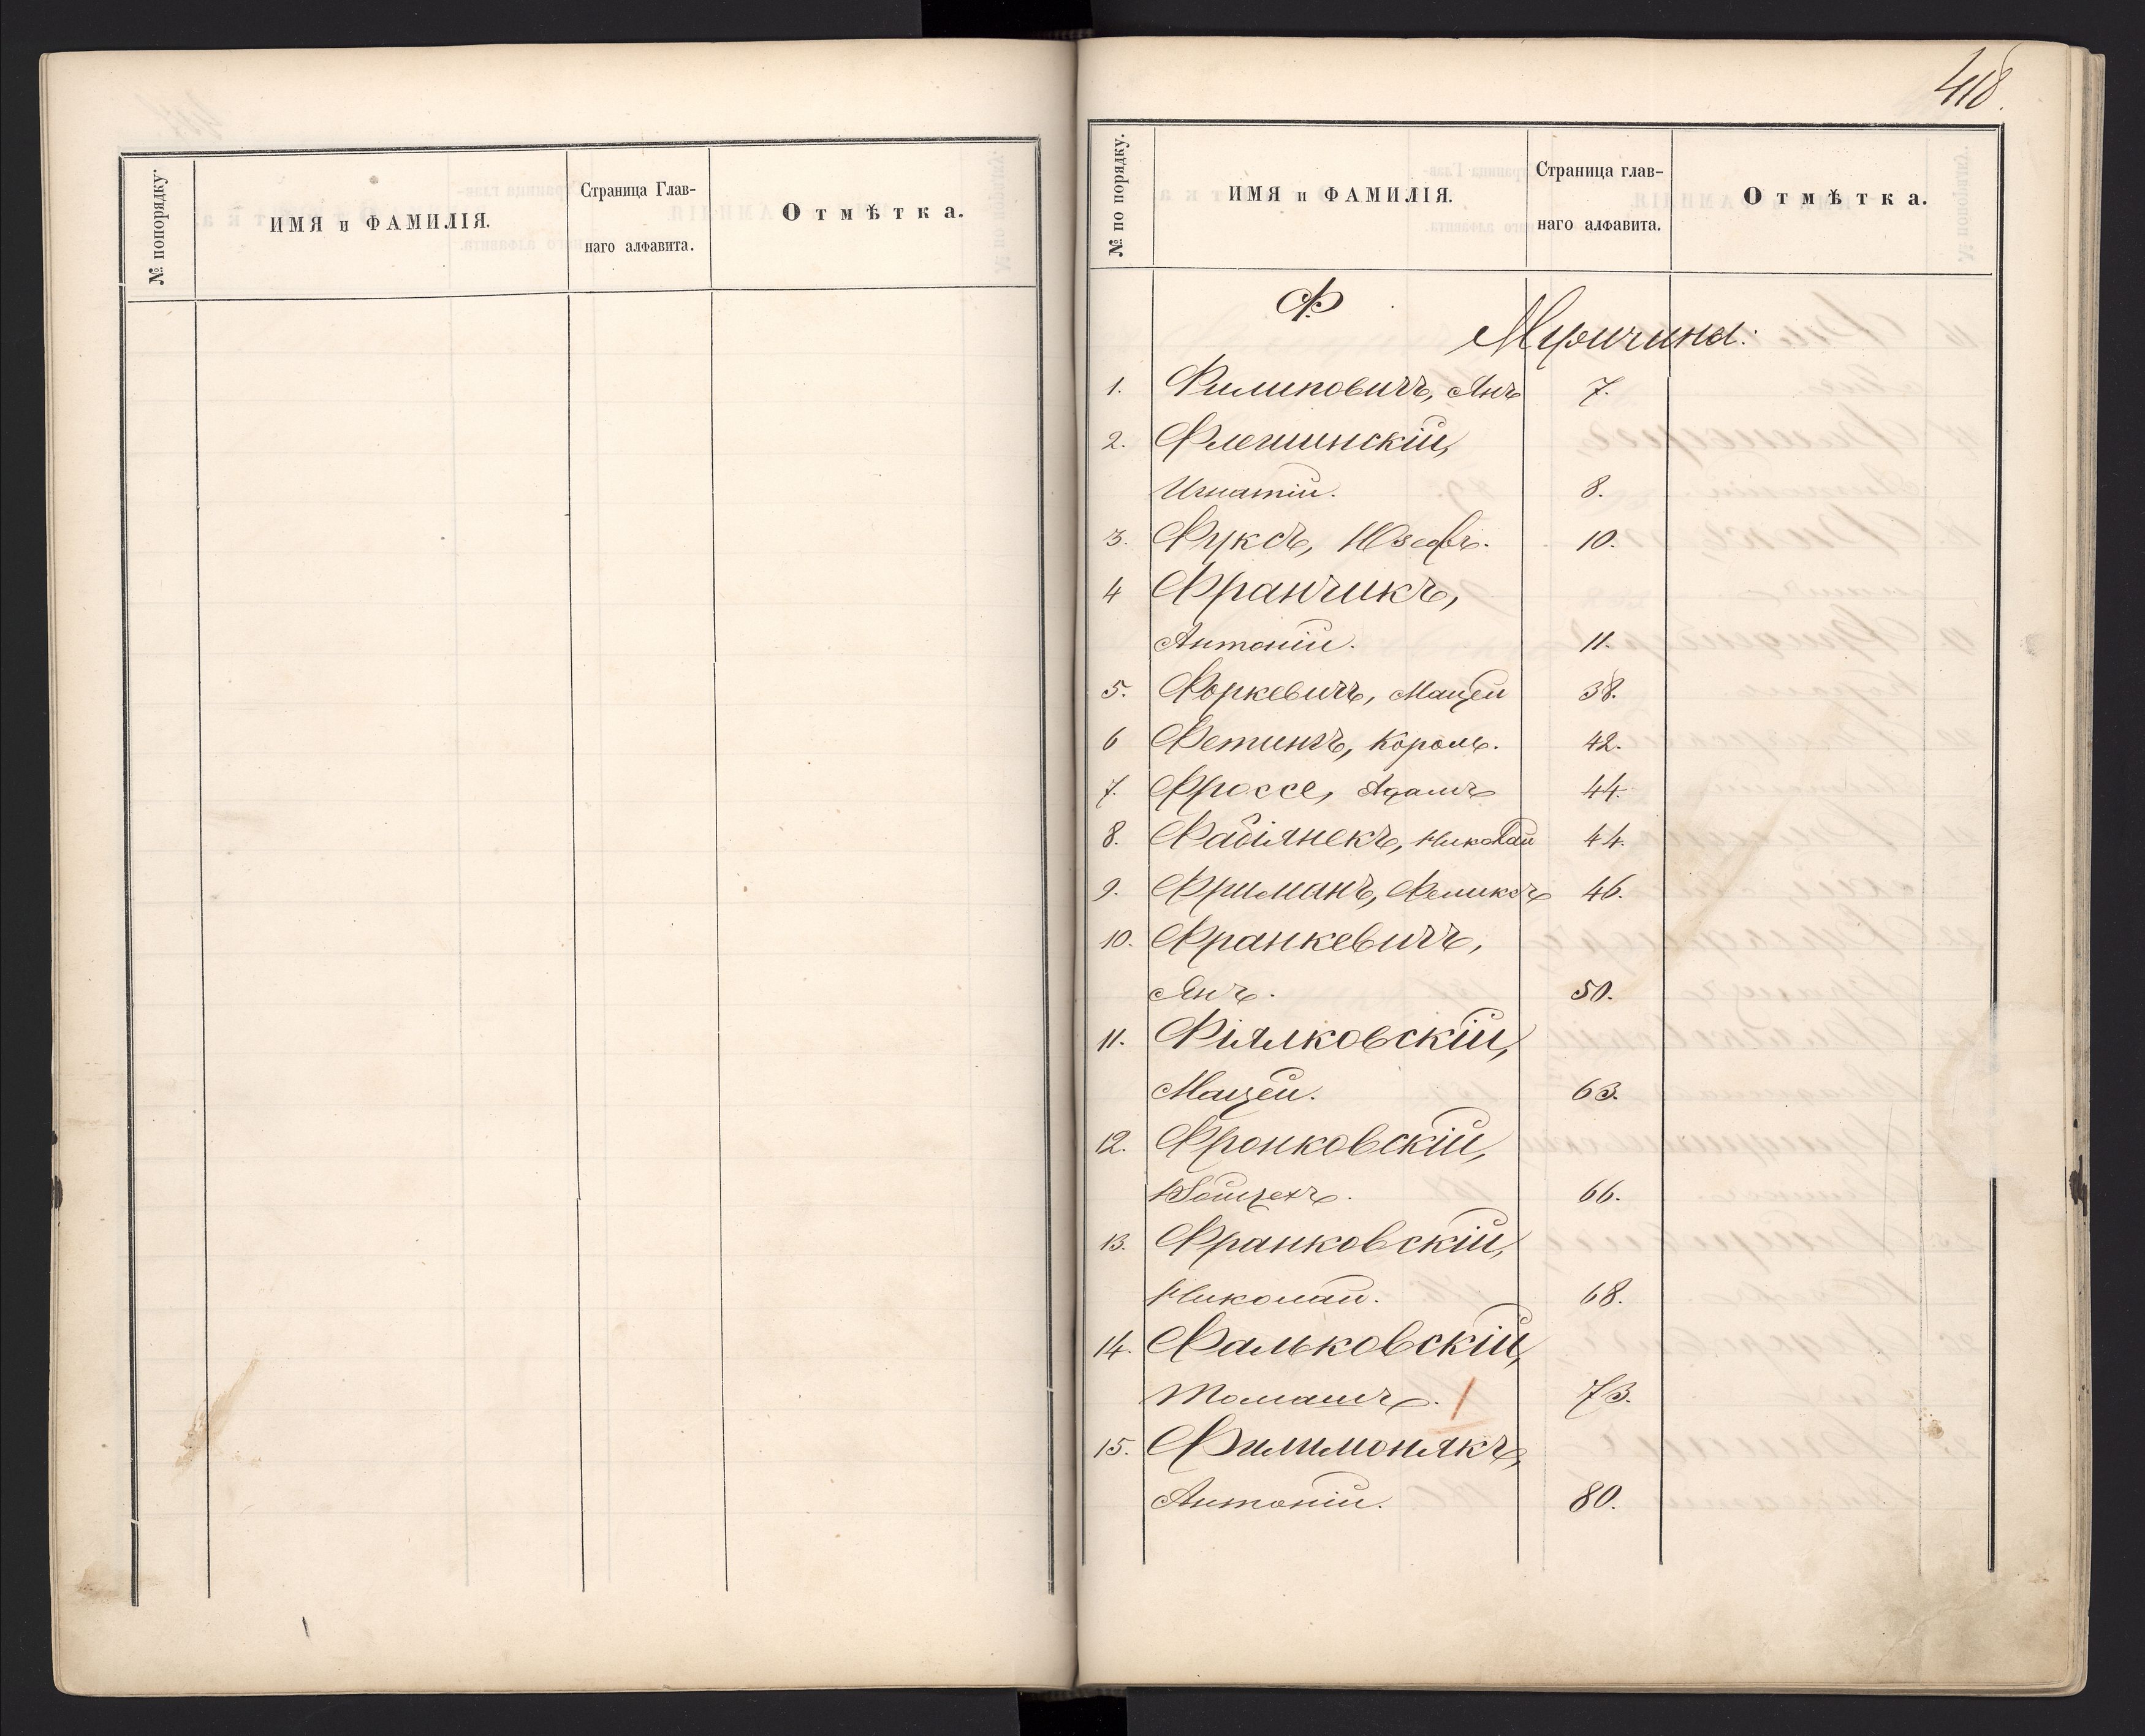 № попорядку.
ИМЯ и ФАМИЛІЯ.
Страница Глав-
наго алфавита.
Отмѣтка.
418.
№ по порядку.
ИМЯ и ФАМИЛІЯ.
Страница глав-
наго алфавита.
Отмѣтка.
Ф
Мужчина:
1. Филиповичъ, Янъ 7.
2. Флешинскій,
Игнатій. 8.
3. Фуксъ, Юзефъ. 10.
4 Франчикъ,
Антоній. 11.
5. Форкевичъ, Мацей 38.
6 Фетингъ, Кароль. 42.
7. Фроссе, Адамъ 44.
8. Фабіянекъ, Николай 44.
9. Фриманъ, Феликсъ 46.
10. Франкевичъ,
Янъ. 50.
11. Фіялковскій,
Мацей. 63.
12. Фронковскій,
Войцехъ. 66.
13. Франковскій,
Николай. 68.
14. Фальковскій,
Томашъ. 73.
15. Филимонякъ,
Антоній. 80.